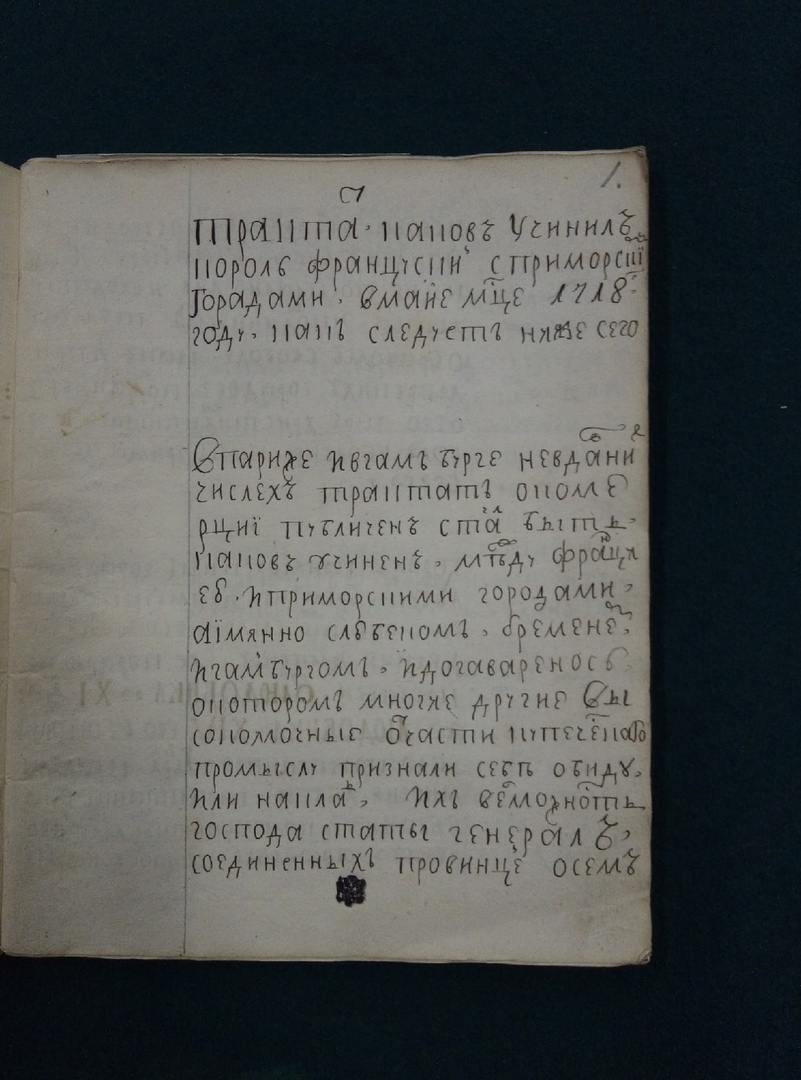 1.
Трактатъ каковъ учинилъ
король францускии с приморскиї
городами. вмаие мце 1718
году. какъ следуетъ ниже сего
Впариже ивгамъбурге невдавни
числехъ трактатъ окоме
рциї публиченъ ста быть
каковъ учиненъ. межъду францу
ев. иприморскими городами.
аїмянно слюбеком. бремене.
игамбургомъ. идогаваренось.
окоторомъ многие другие вы
сокомочные очасти купеческаго
промыслу признали себѣ обиду.
или накладъ. ихъ велможность
господа статы генералъ.
соединенныхъ провинце осемъ